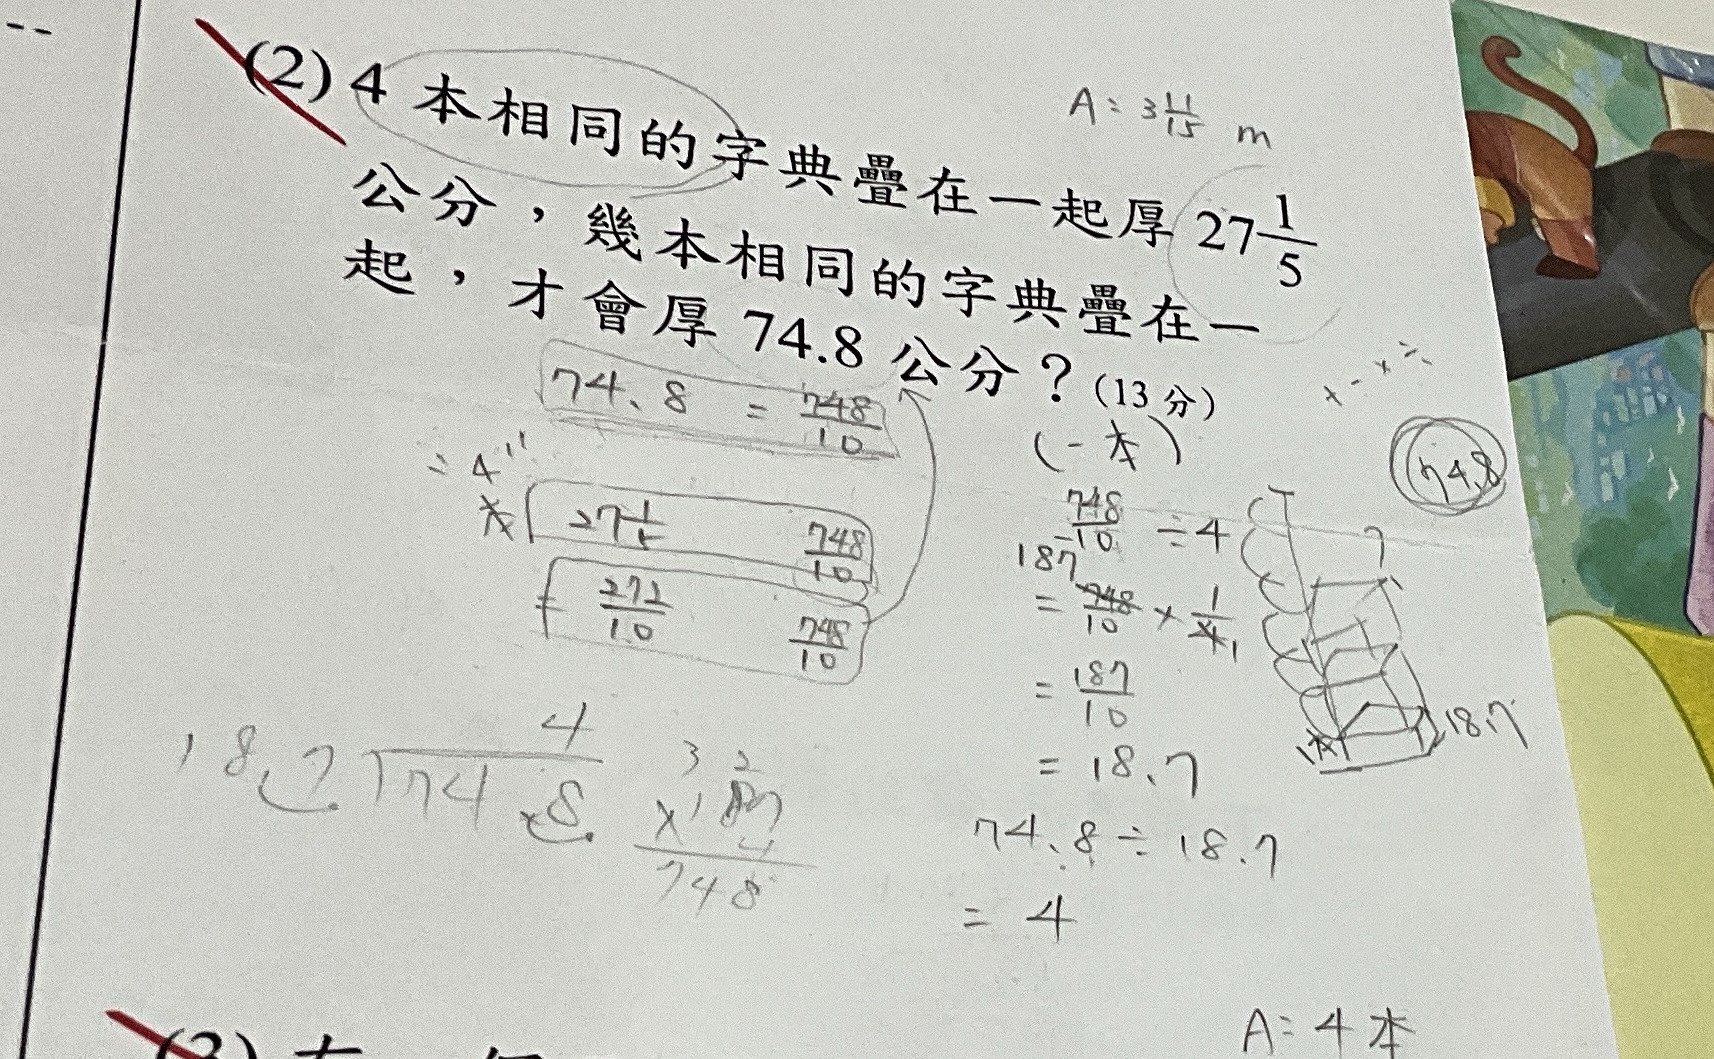 A = 3 11/15 m
(2) 4 本相同的字典疊在一起厚 27 1/5
公分，幾本相同的字典疊在一
起，才會厚 74.8 公分？(13 分)
74.8 = 748/10
(一本)
÷4
27 1/5 748/10
= 272/10 748/10
748/10 ÷ 4
187
= 748/10 × 1/4 1
= 187/10
= 18.7
74.8 ÷ 18.7
= 4
+ - × ÷
74.8
?
18.7
4
18.7 74.8
3 2
187
× 4
748
A = 4 本
(3)